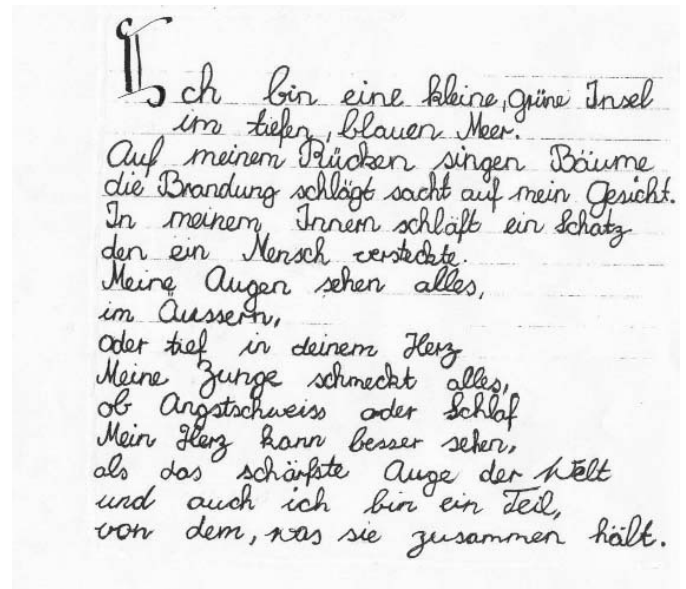 Ich bin eine kleine, grüne Insel
im tiefen, blauen Meer.
Auf meinem Rücken singen Bäume
die Brandung schlägt sacht auf mein Gesicht.
In meinem Innern schläft ein Schatz
den ein Mensch versteckte.
Meine Augen sehen alles,
im Äussern,
oder tief in deinem Herz
Meine Zunge schmeckt alles,
ob Angstschweiss oder Schlaf
Mein Herz kann besser sehen,
als das schärfste Auge der Welt
und auch ich bin ein Teil,
von dem, was sie zusammen hält.